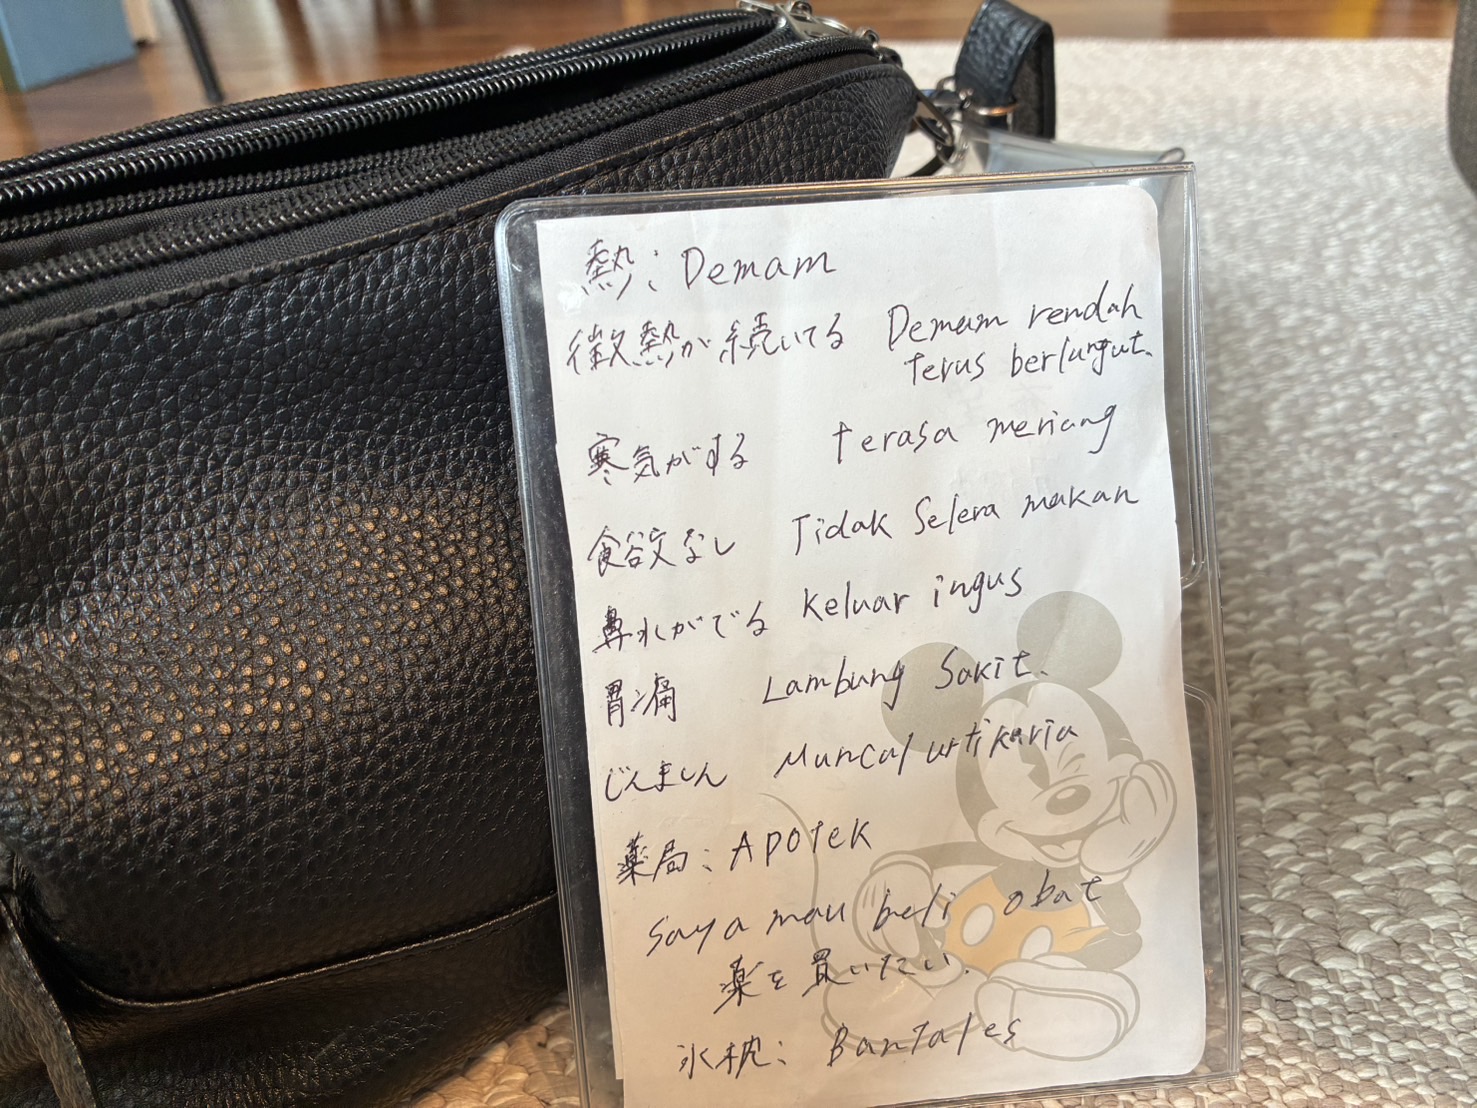 熱：Demam
微熱が続いてる Demam rendah
terus berlungut.
寒気がする terasa meriang
食欲なし Tidak Selera makan
鼻水がでる Keluar ingus
胃痛 Lambung Sakit.
じんましん Muncul urtikaria
薬局：APOTEK
Saya mau beli obat
薬を買いたい.
氷枕：Bantal es